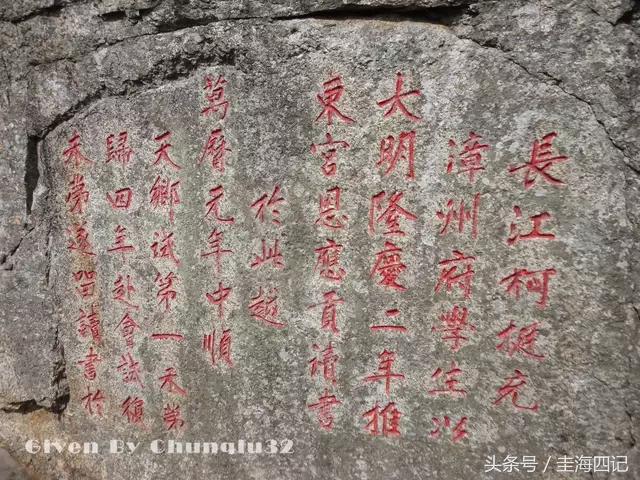 長江柯挺充
漳州府學生以
大明隆慶二年推
東宮恩應貢讀書
於此越
萬曆元年中順
天鄉試第一未第
歸四年赴會試復
未第遂畱讀書於
Given By Chunqlu32
头条号 / 圭海四记